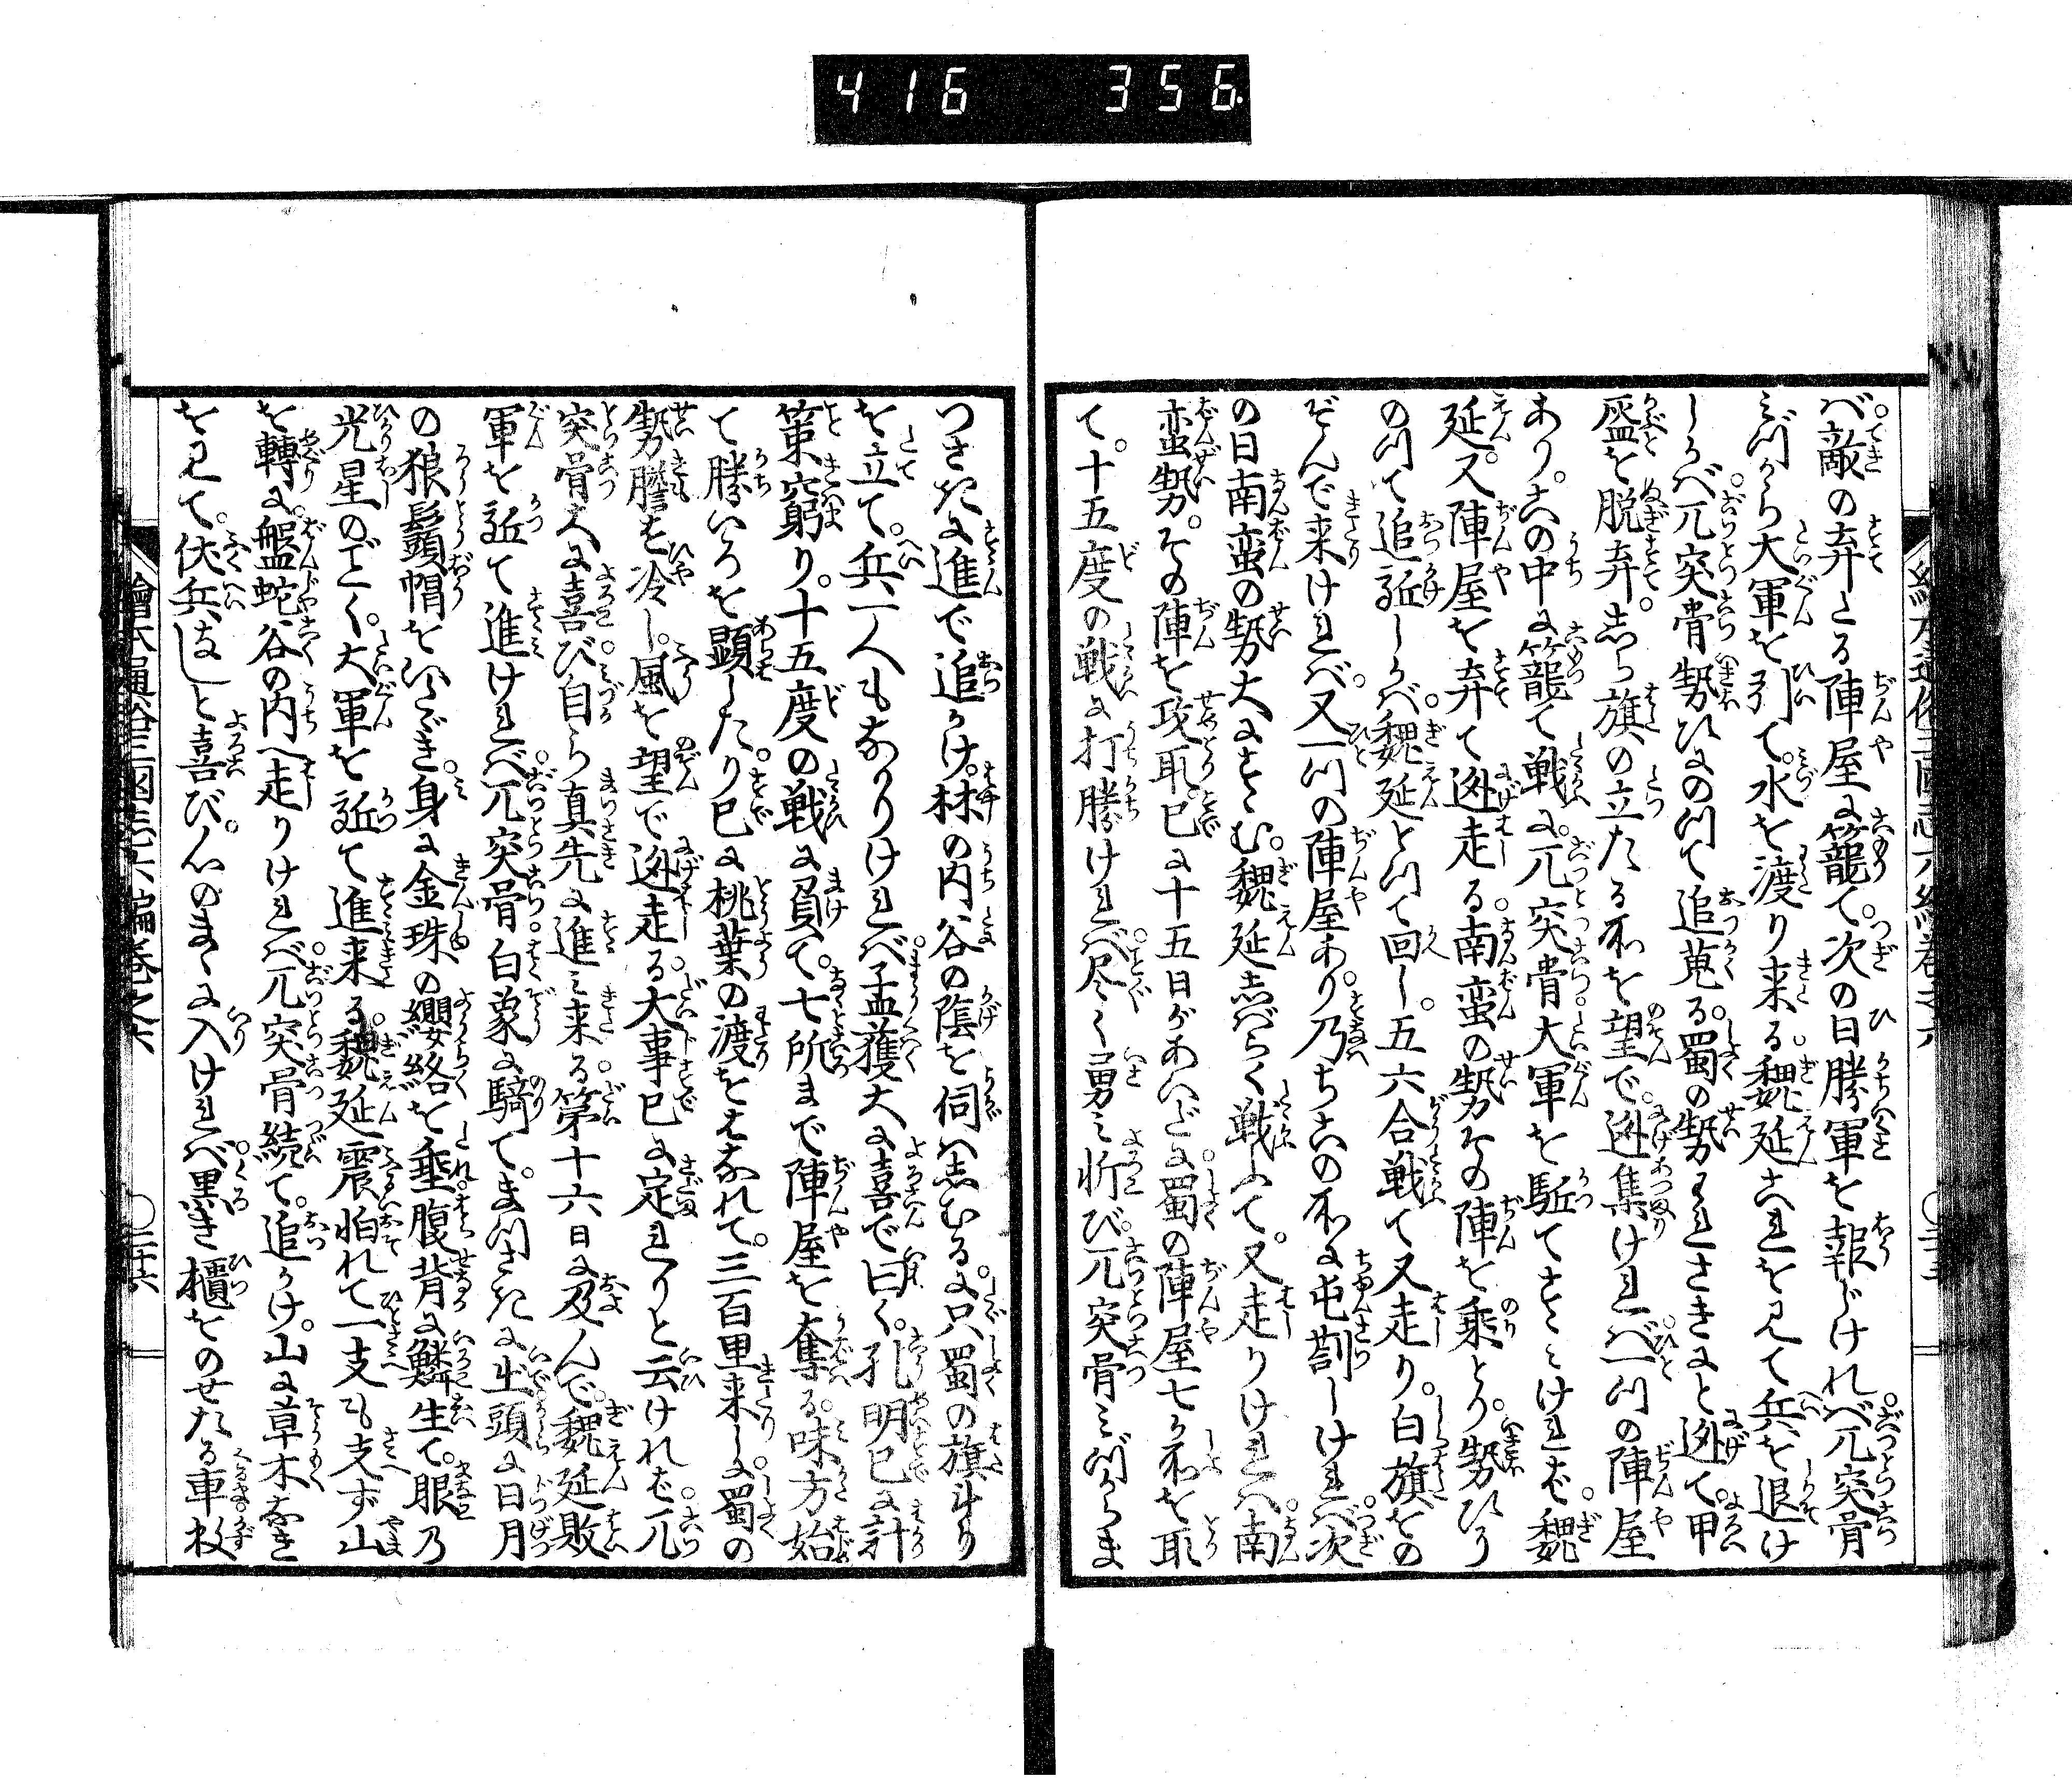 416 356
べ。敵の弃たる陣屋に籠て。次の日勝軍を報じけれバ。兀突骨
ミづから大軍を引て。水を渡り来る。魏延これを見て兵を退け
しかバ。兀突骨勢ひにのつて追蒐る。蜀の勢われさきにと迯て。甲
盔を脱弃。しら旗の立たる所を望で迯集けれバ。一つの陣屋
あり。この中に籠て戦に。兀突骨大軍を駈てすゝミければ。魏
延。又陣屋を弃て迯走る。南蛮の勢その陣を乗とり。勢ひに
のつて追駈しかバ。魏延とつて回し。五六合戦て又走り。白旗をの
ぞんで来けれバ。又一つの陣屋あり。乃ちこの所に屯劄しけれバ。次
の日南蛮の勢大にすゝむ。魏延しばらく戦ふて。又走りけれバ。南
蛮勢。その陣を攻取。已に十五日があいだに。蜀の陣屋七ケ所を取
て。十五度の戦に打勝けれバ。尽く勇ミ忻び。兀突骨ミづからま
つさきに進で追かけ。林の内谷の陰を伺ハしむるに。只蜀の旗斗り
を立て。兵一人もなかりけれバ。孟獲大に喜で曰く。孔明已に計
策窮り。十五度の戦に負て。七所まで陣屋を奪る。味方始
て勝いろを顕したり。已に桃葉の渡をはなれて。三百里来しに。蜀の
勢膽を冷し。風を望で迯走る。大事已に定れりと云ければ。兀
突骨大に喜び。自ら真先に進ミ来る。第十六日に及んで。魏延敗
軍を駈て進けれバ。兀突骨。白象に騎て。まつさきに出。頭に日月
の狼鬚帽をいたゞき。身に金珠の纓絡を垂。腹背に鱗生て。眼乃
光星のごとく。大軍を駈て進来る。魏延震怕れて一支も支ず。山
を轉に。盤蛇谷の内へ走りけれバ。兀突骨続て。追かけ。山に草木なき
を見て。伏兵なしと喜び。心のまゝに入けれバ。黒き櫃をのせたる車数
繪本通俗三國志六編巻之六
〇二十六